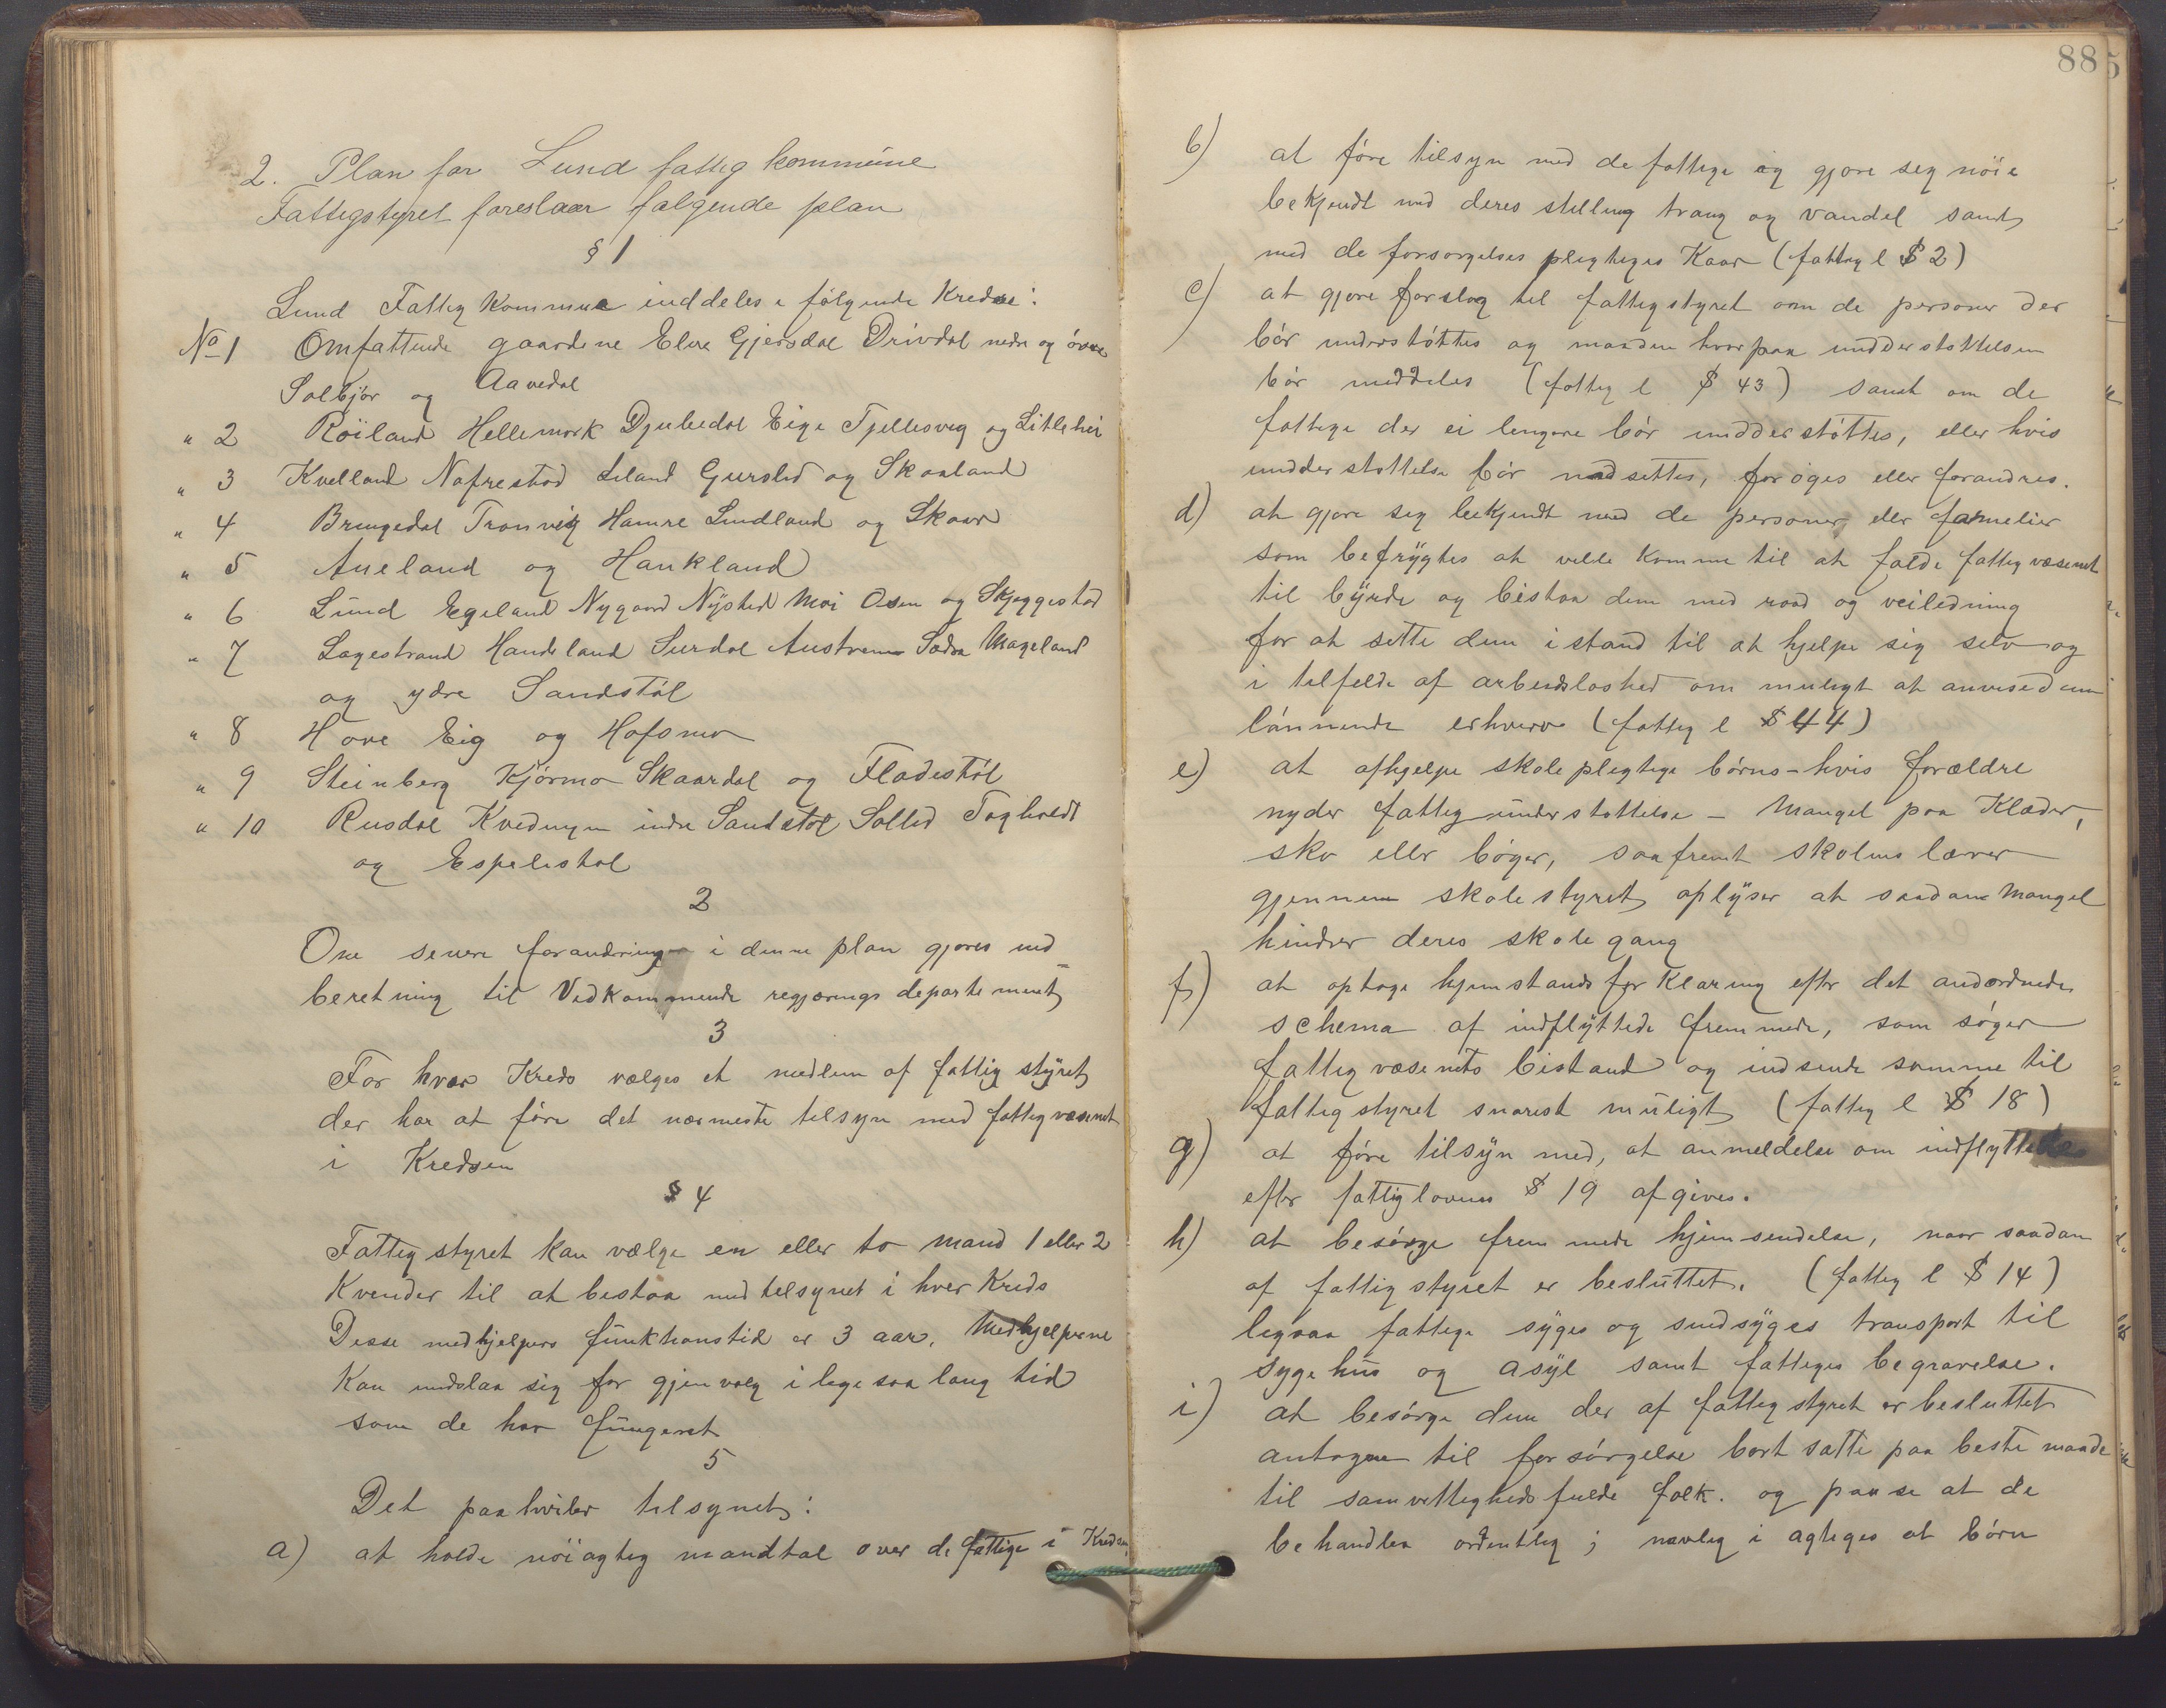 2. Plan for Lund fattig kommune
Fattigstyret foreslaar følgende plan
§ 1
Lund Fattig kommune inddeles i følgende Kredse:
No 1 Omfattende gaardene Elve Gjersdal Drivdal nedre og övre
Solbjör og Aavedal
" 2 Röiland Hellemork Djubedal Eige Tjellesvig og Litlehei
" 3 Kvelland Nafrestad Leland Gursled og Skaaland
" 4 Bringedal Tronvig Hamre Lindland og Skaar
" 5 Aueland og Haukland
" 6 Lund Egeland Nygaard Nysted Moi Osen og Skjeggestad
" 7 Lagestrand Handeland Surdal Austrem Mageland
og ydre Sandstöl
" 8 Hove Eig og Hofsmo
" 9 Steinberg Kjörmo Skaardal og Fladestöl
" 10 Rusdal Kvednyen indre Sandstöl Solled Togholdt
og Espelistøl
2
Om senere forandringer i denne plan gjøres ind=
beretning til Vedkommende regjærings departement
3
For hver Kreds vælges et medlem af fattig styret
der har at före det nærmeste tilsyn med fattigvæsenet
i Kredsen
§ 4
Fattigstyret kan vælge en eller to mand 1 eller 2
Kvender til at bistaa med tilsynet i hver Kreds
Disse medhjelpers funktionstid er 3 aar. Medhjelperne
kan undslaa sig for gjenvalg i lige saa lang tid
som de har fungeret
5
Det paahviler tilsynet:
a) at holde nöiagtig mandtal over de fattige i Kredsen
88
b) at före tilsyn med de fattige og gjøre seg nöie
bekjendt med deres stilling trang og vandel samt
med de forsorgelses pligtiges Kaar (fattig l § 2)
c) at gjøre forslag til fattigstyret om de personer der
bör understöttes og maaden hvorpaa undderstøttelsen
bör meddeles (fattig l § 43) samt om de
fattige der ei lengere bör undderstöttes, eller hvis
undderstøttelse bör nedsettes, foröges eller forandres.
d) at gjøre seg bekjendt med de personer eller famelier
som befrygtes at ville komme til at falde fattigvæsenet
til byrde og bistaa dem med raad og veiledning
for at sette dem i stand til at hjelpe sig selv og
i tilfelde af arbeidsløshed om muligt at anvise dem
lönnende erhverv (fattig l § 44)
e) at afhjelpe skolepligtige börns - hvis forældre
nyder fattigunderstøttelse - Mangel paa Klæder,
sko eller böger, saafremt skolens lærer
gjennem skolestyret oplyser at saadan Mangel
hindrer deres skolegang
f) at optage hjemstands forklaring efter det andordnede
schema af indflyttede fremmede, som söger
fattigvæsenets bistand og indsende samme til
fattigstyret snarest muligt (fattig l § 18)
g) at före tilsyn med, at anmeldelse om indflyttede
efter fattiglovens § 19 afgives.
h) at besörge fremmede hjemsendelse, naar saadan
af fattigstyret er besluttet. (fattig l § 14)
legsaa fattige syges og sindsyges transport til
sygehus og asyl samt fattiges begravelse.
i) at besörge dem der af fattigstyret er besluttet
antagen til forsörgelse bort satte paa beste maade
til samvittighedsfulde folk. og paase at de
behandles ordentlig; navlig i agteges at börn